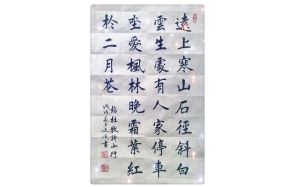 遠上寒山石徑斜白
雲生處有人家停車
坐愛楓林晚霜葉紅
於二月花
杜牧詩山行
戊戌書